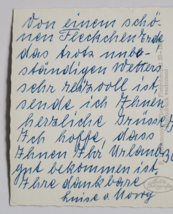 Von einem schö-
nen Fleckchen Erde
das trotz unbe-
ständigen Wetters
sehr reizvoll ist,
sende ich Ihnen
herzliche Grüsse!
Ich hoffe, dass
Ihnen Ihr Urlaub
gut bekommen ist.
Ihre dankbare
Luise